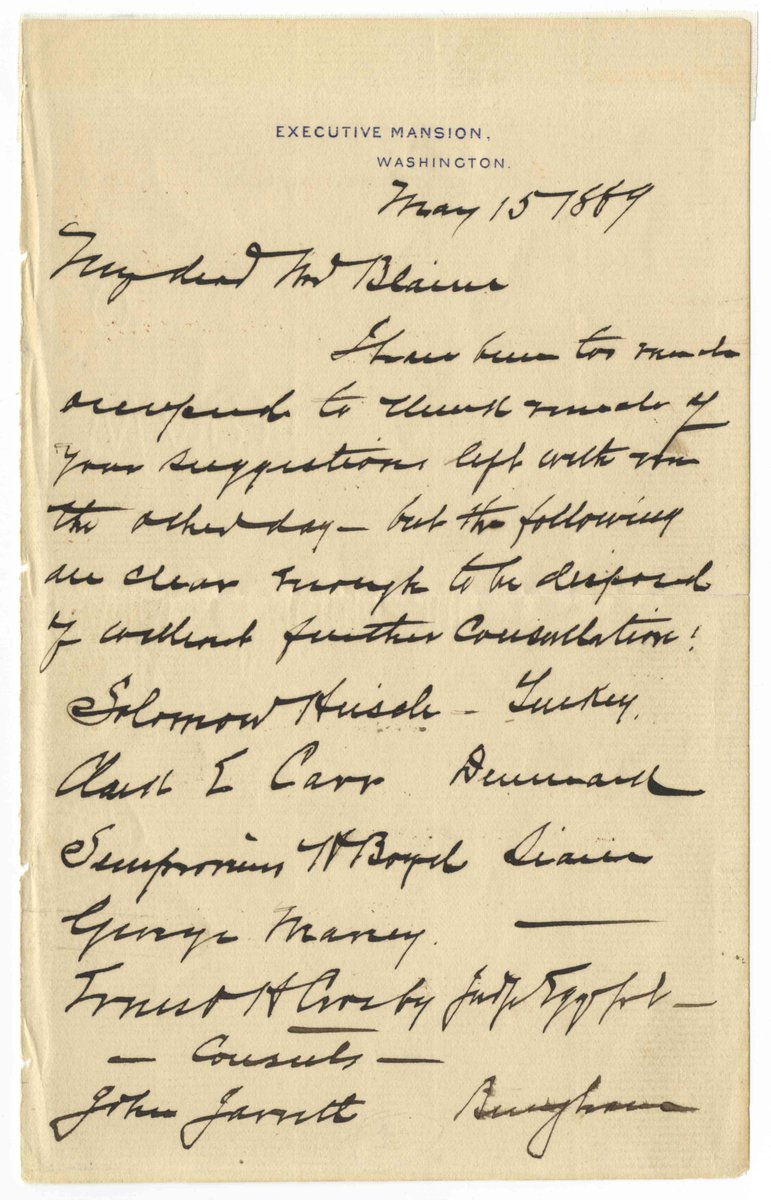 EXECUTIVE MANSION,
WASHINGTON.
May 15 1889
My dear Mr Blaine
I have been too much
occupied to think much of
your suggestions left with me
the other day – but the following
are clear enough to be disposed
of without further consultation:
Solomon Hirsch – Turkey.
Clark E Carr Denmark
Sempronius H Boyd Siam
George Maney. —
Ernest H Crosby Judge Egypt –
– Consuls –
John Jarrett